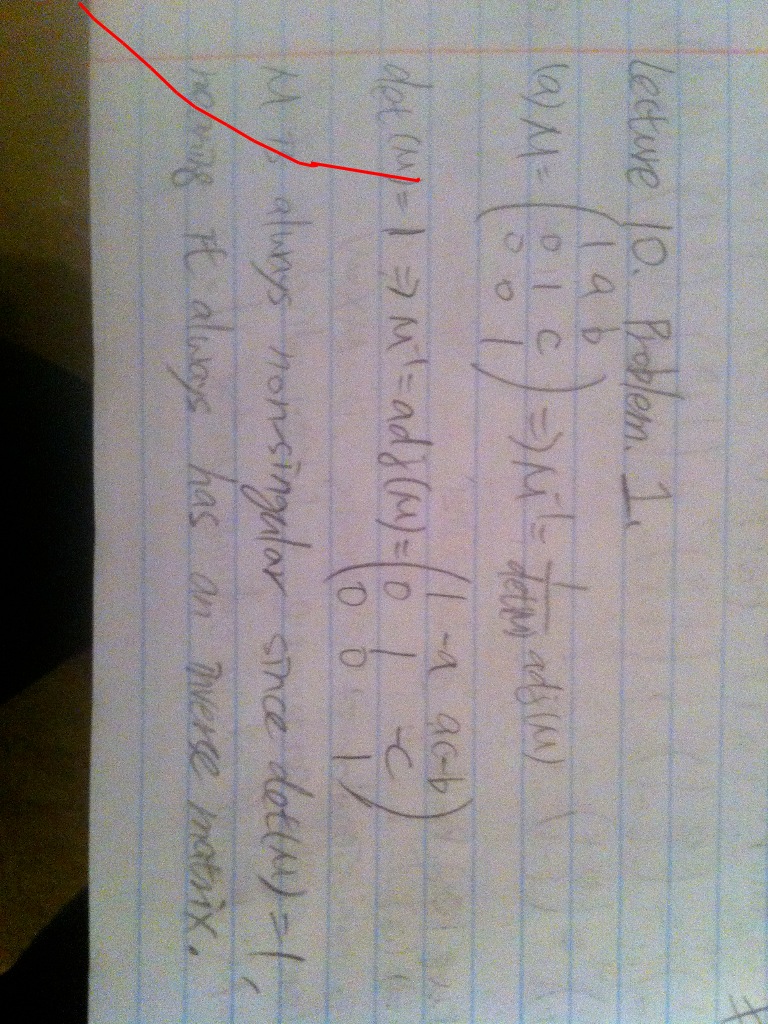 Lecture 10. Problem. 1.
(a) M = ( 1 a b
0 1 c
0 0 1 ) => M⁻¹ = 1/det(M) adj(M)
det(M) = 1 => M⁻¹ = adj(M) = ( 1 -a ac-b
0 1 -c
0 0 1 )
M is always nonsingular since det(M) = 1,
meaning it always has an inverse matrix.